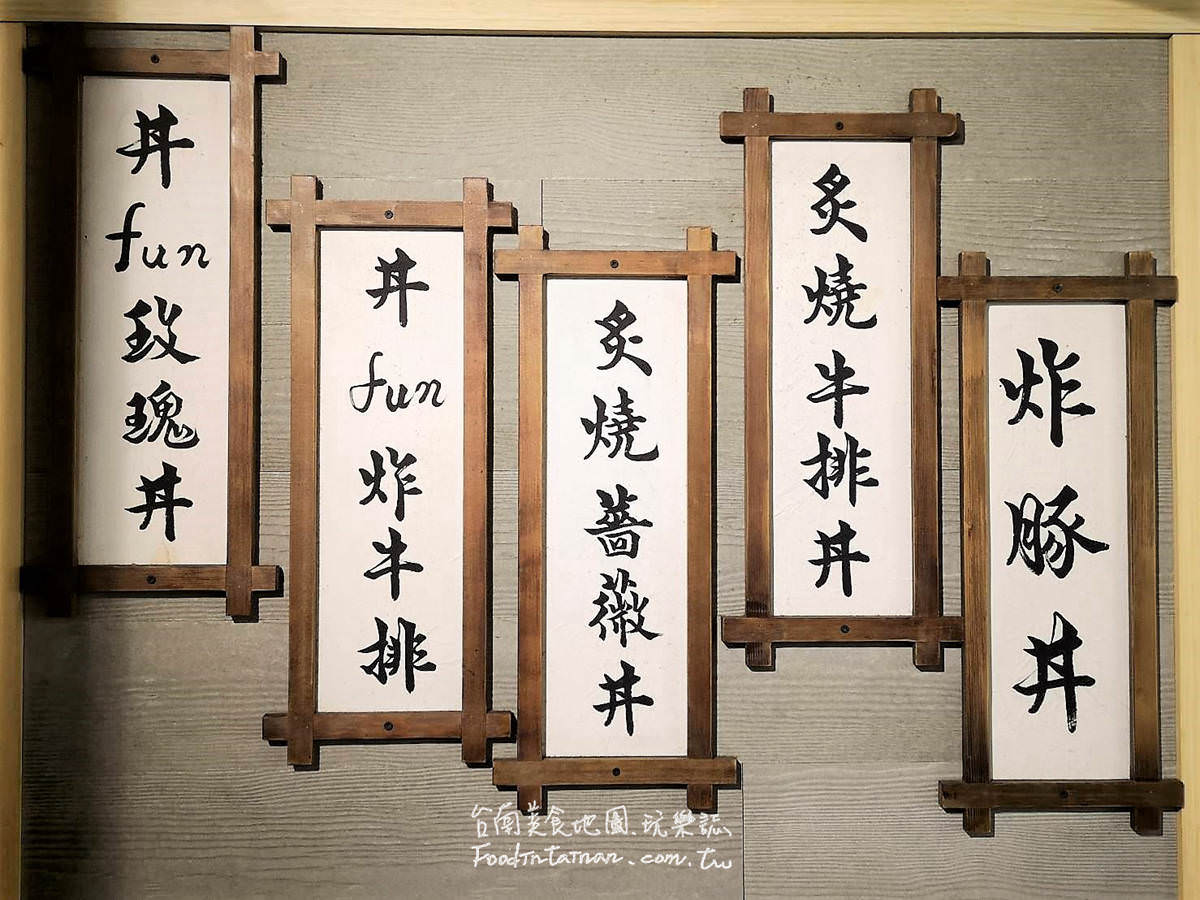 丼fun玫瑰丼
丼fun炸牛排
炙燒薔薇丼
炙燒牛排丼
炸豚丼
台南美食地圖.玩樂誌
FoodInTainan.com.tw